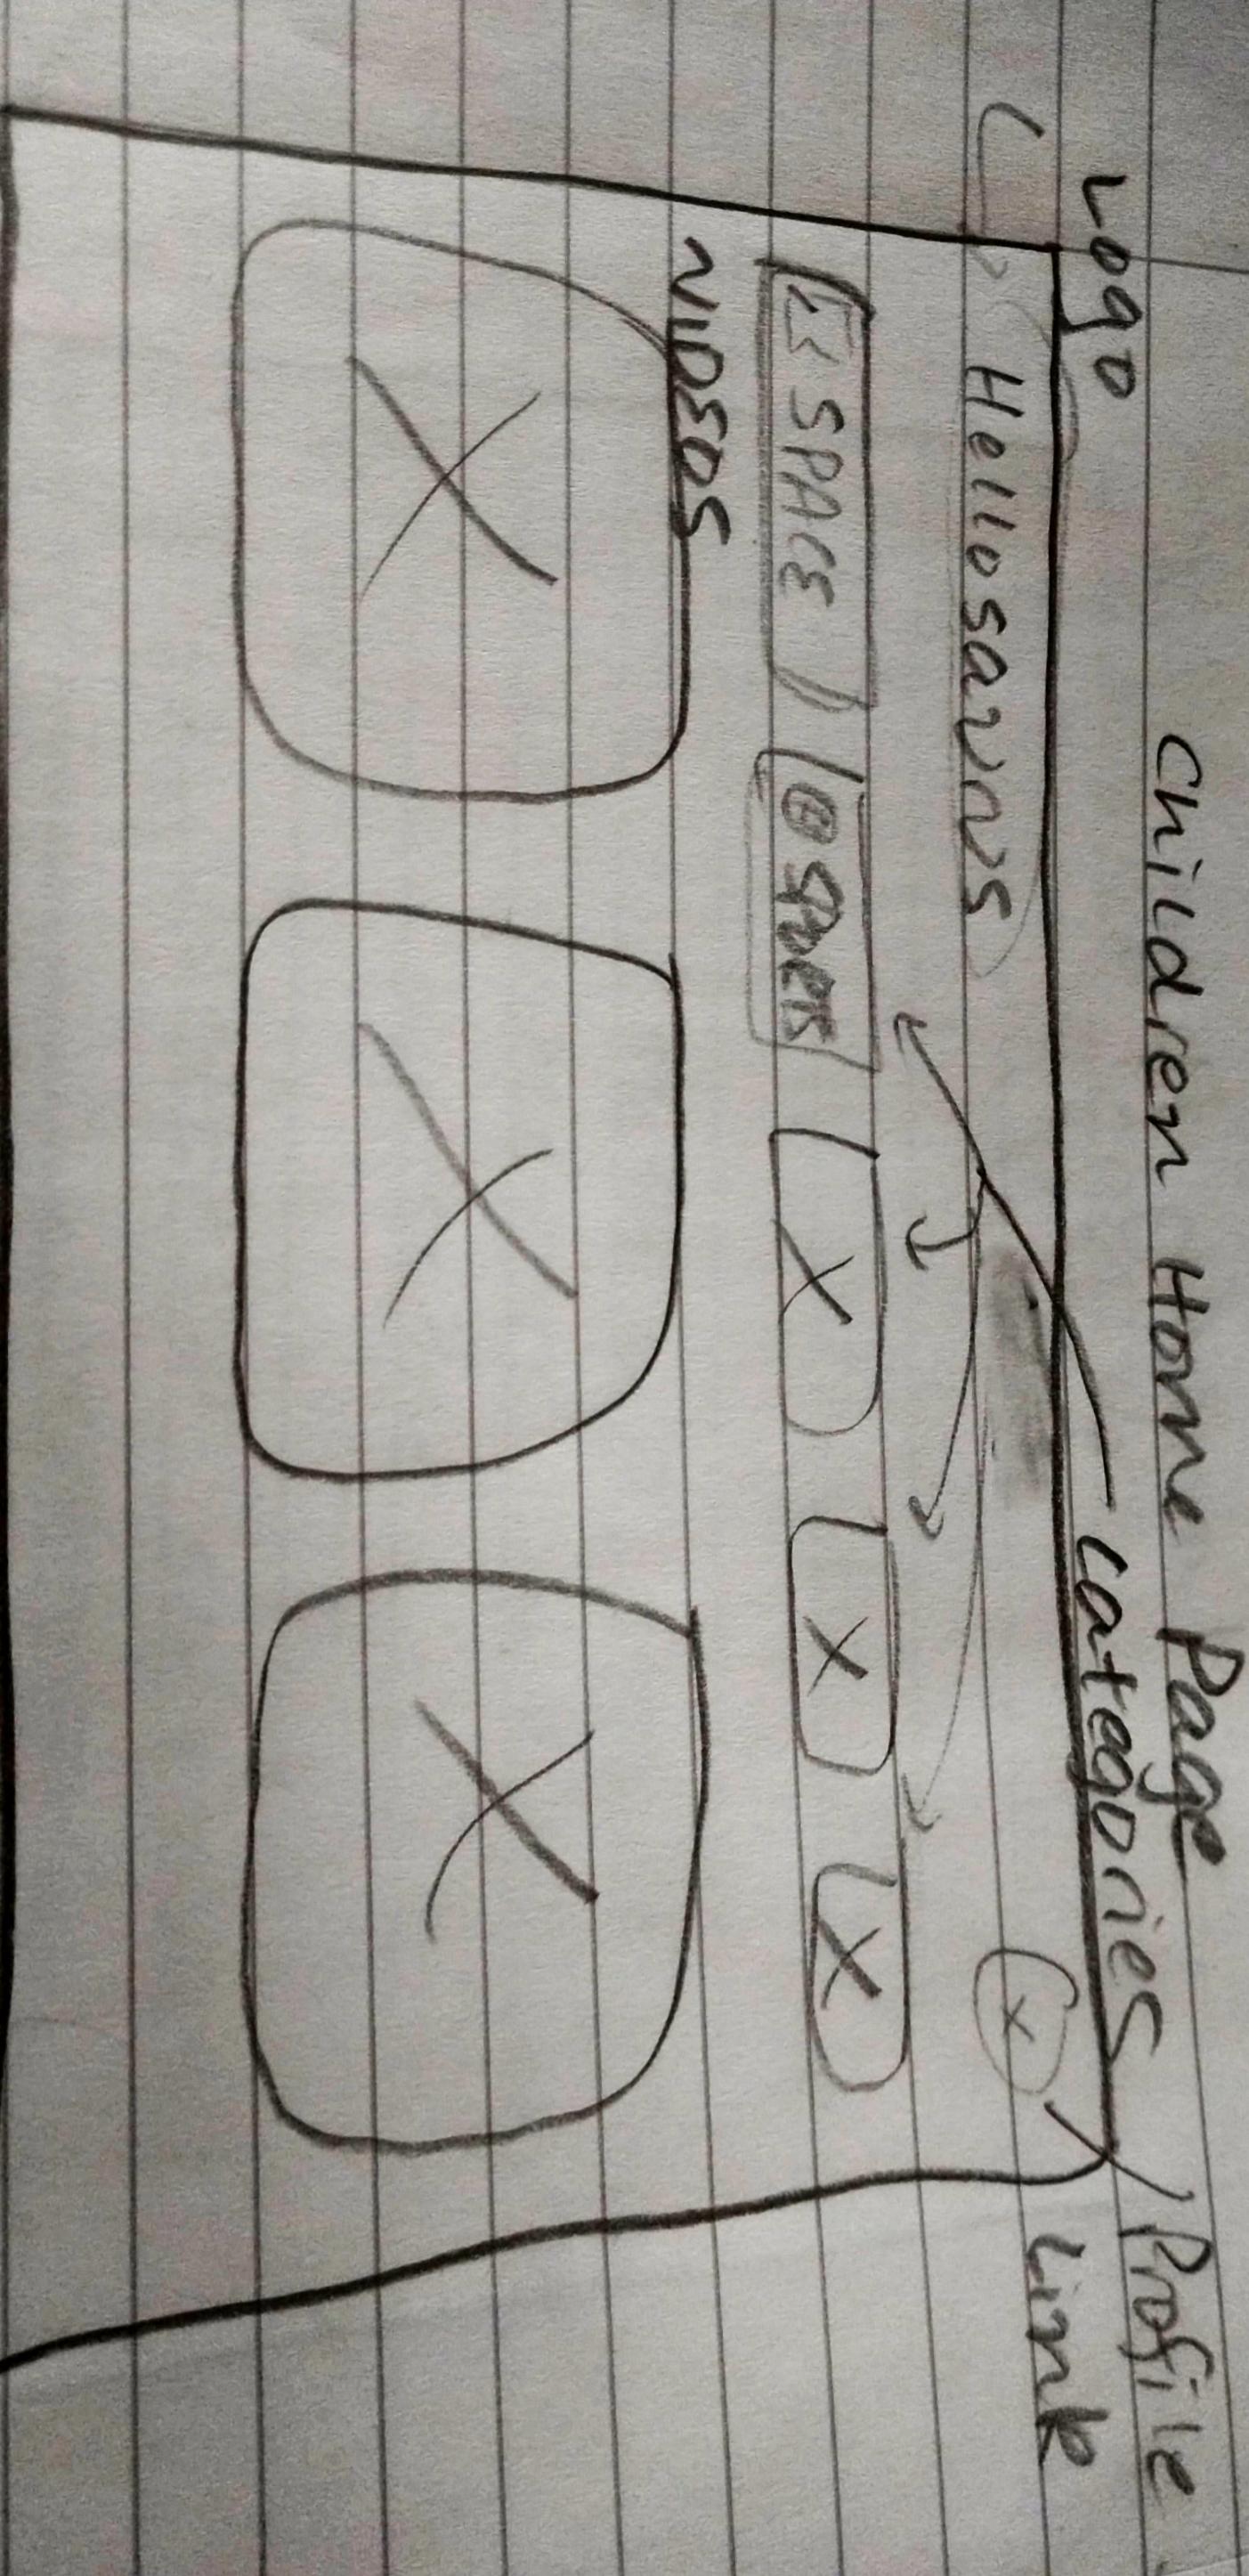 Children Home Page
Logo
categories
Profile
Link
Hellosaurus
X
SPACE
SPORTS
X
X
X
VIDEOS
X
X
X